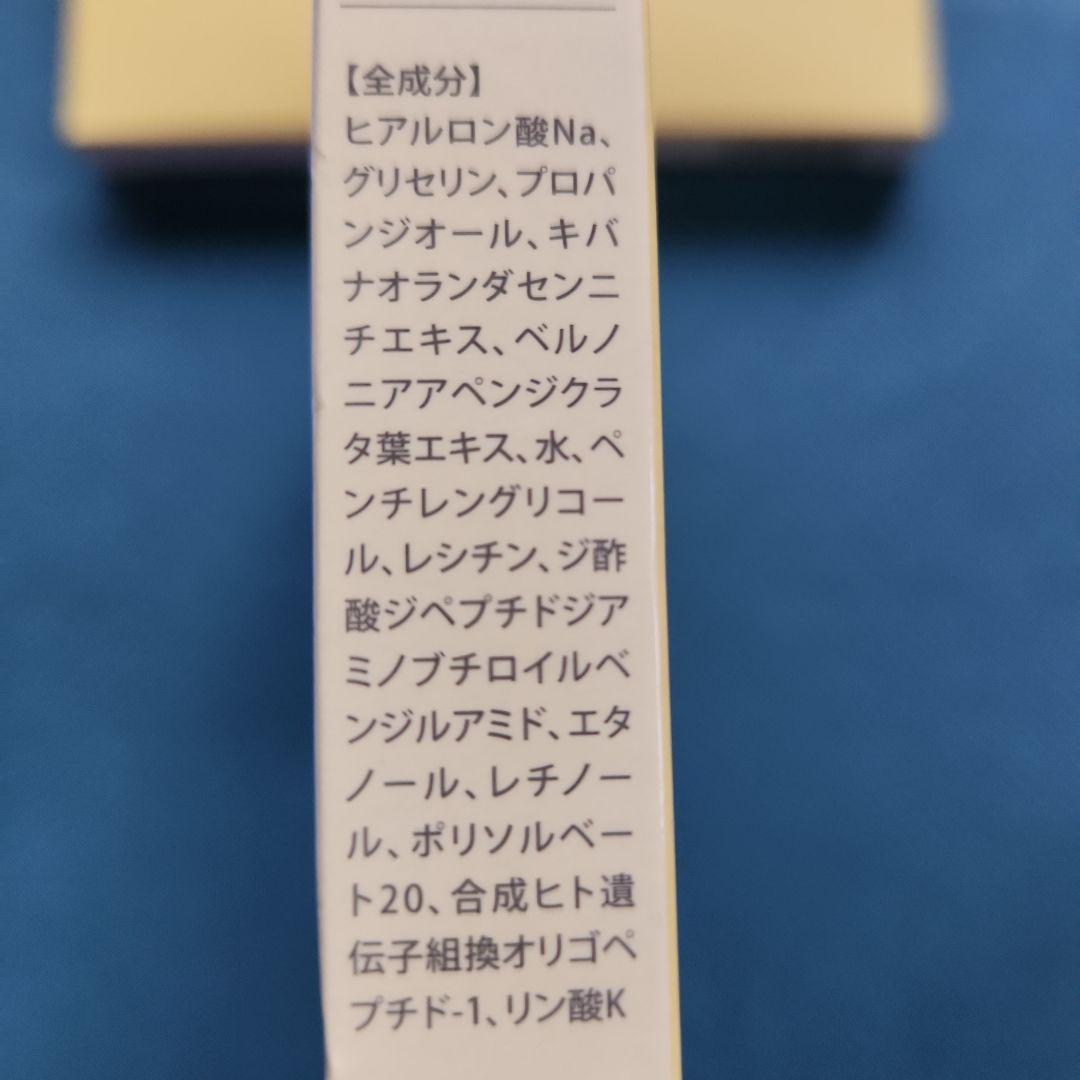 【全成分】
ヒアルロン酸Na、
グリセリン、プロパ
ンジオール、キバ
ナオランダセンニ
チエキス、ベルノ
ニアアペンジクラ
タ葉エキス、水、ペ
ンチレングリコー
ル、レシチン、ジ酢
酸ジペプチドジア
ミノブチロイルベ
ンジルアミド、エタ
ノール、レチノー
ル、ポリソルベー
ト20、合成ヒト遺
伝子組換オリゴペ
プチド-1、リン酸K